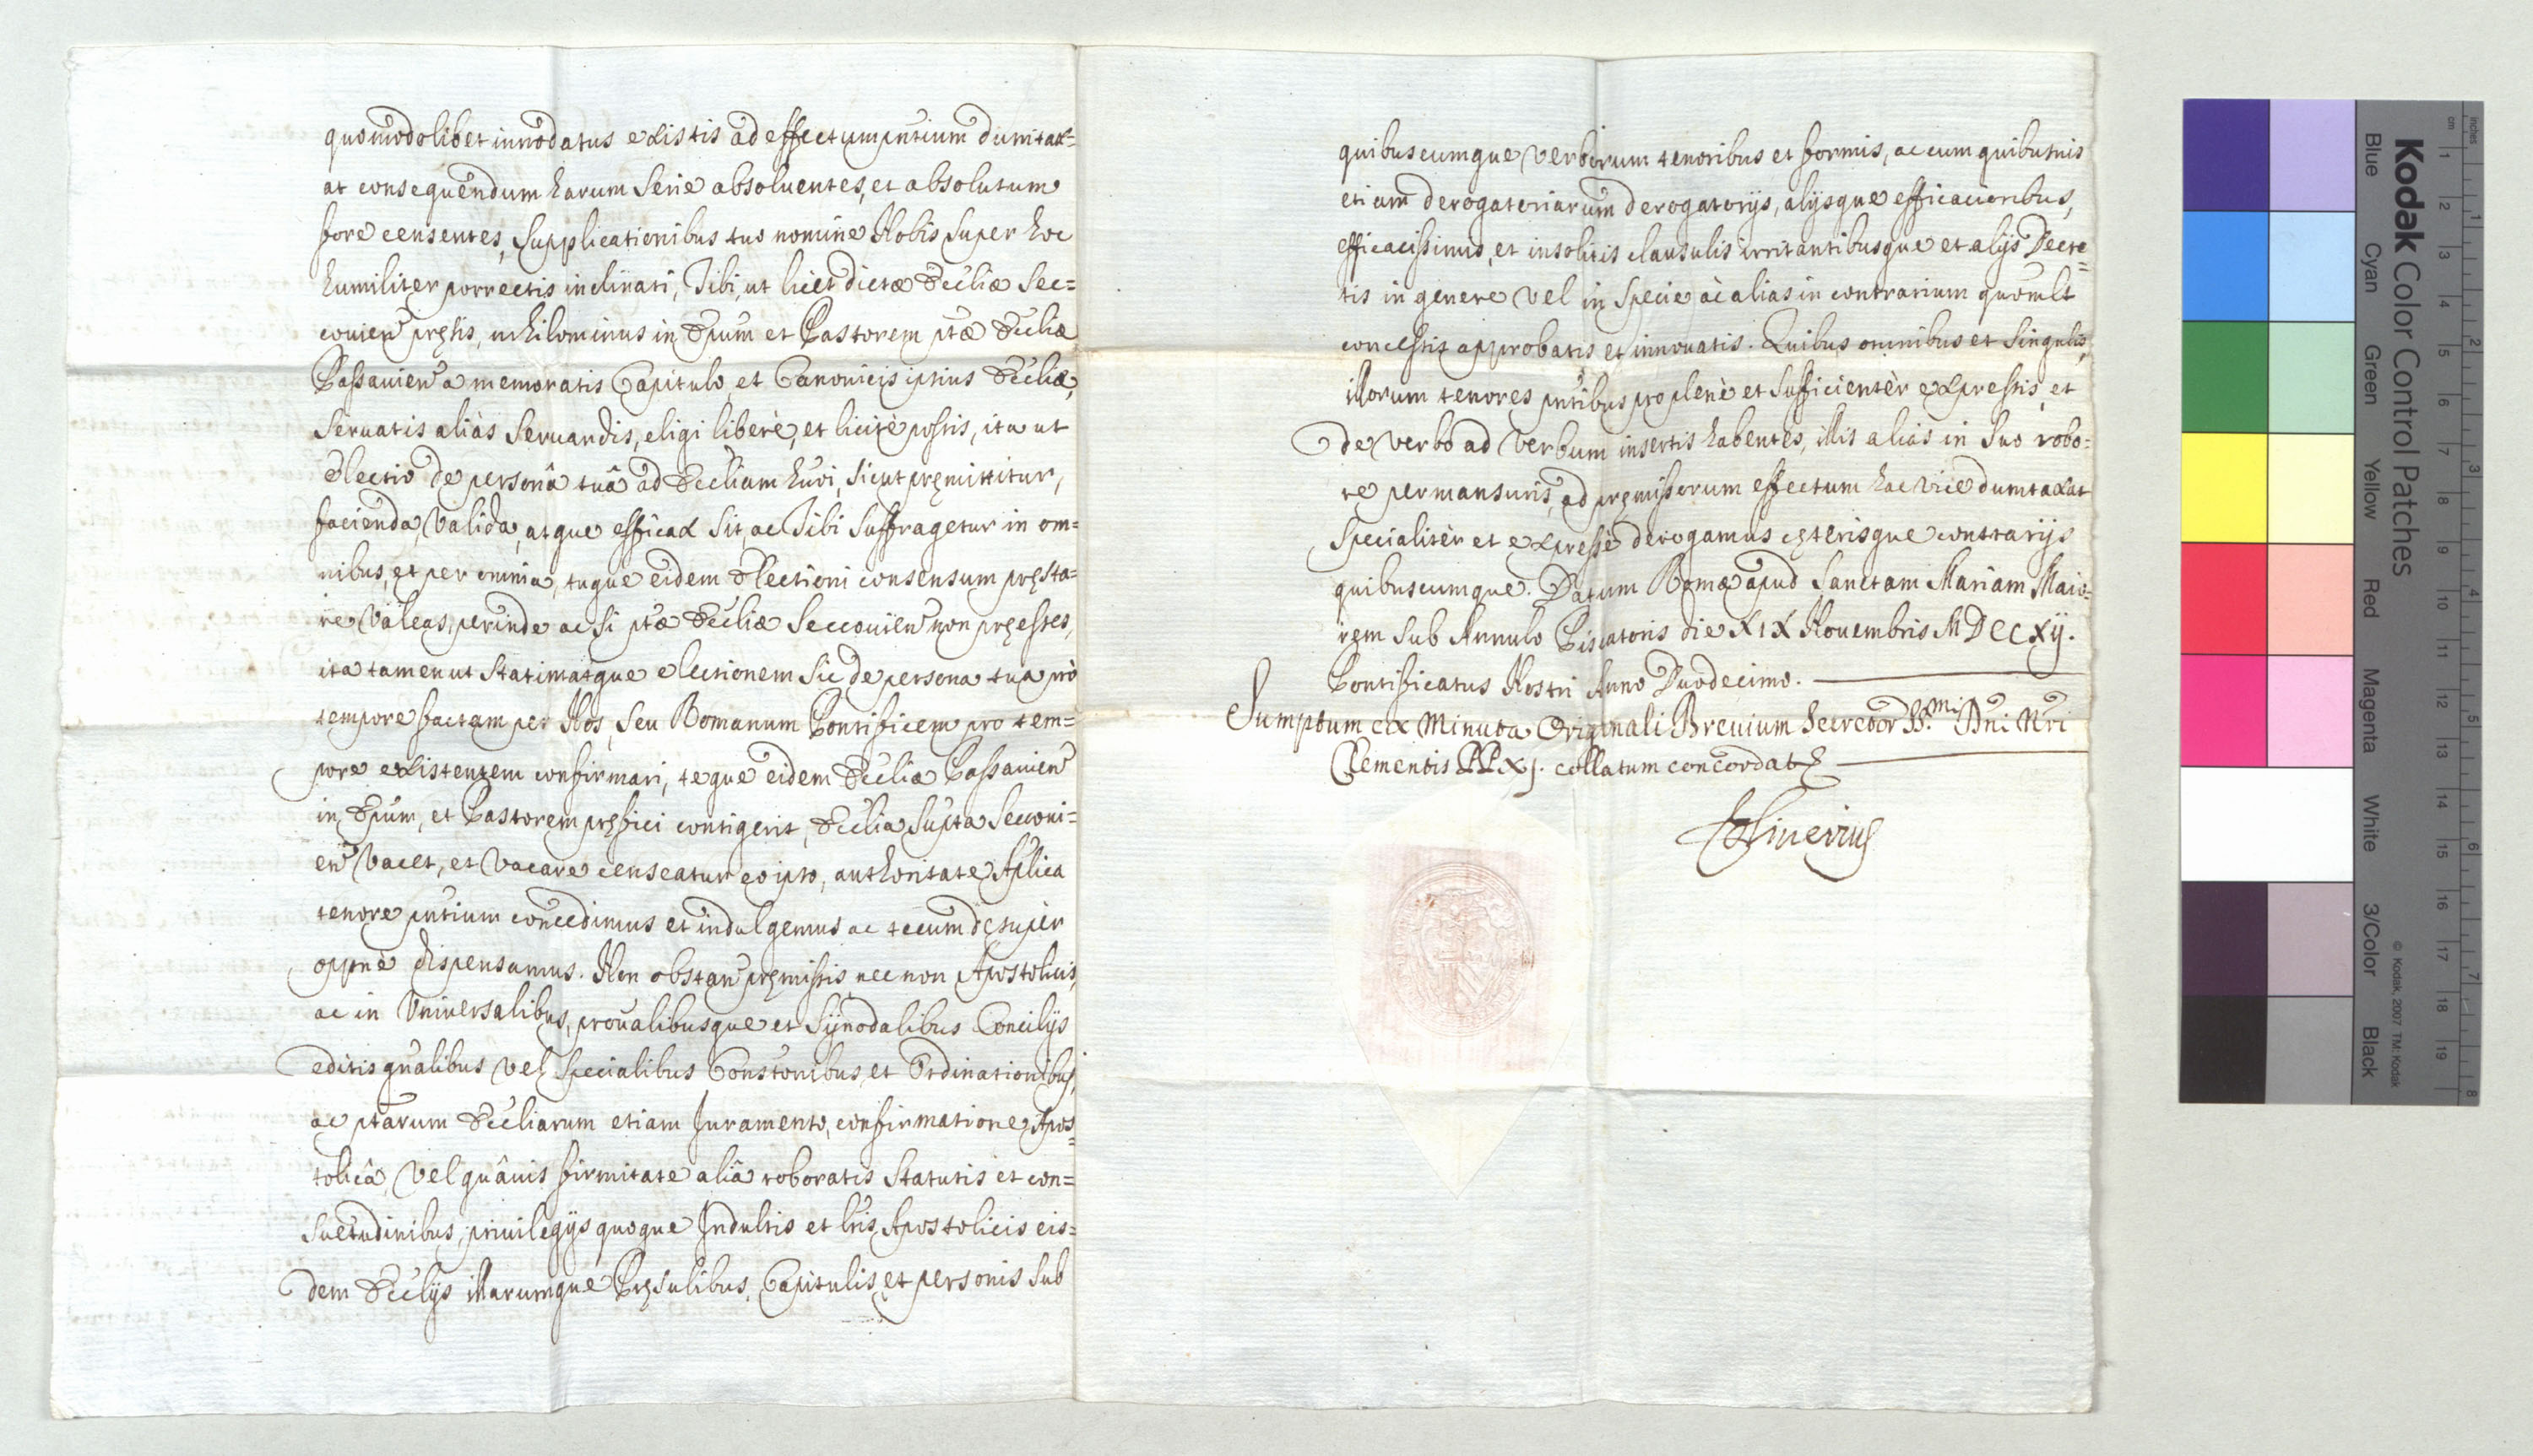 quomodolibet innodatus existis ad effectum pntium dumtax=
at consequendum harum serie absoluentes, et absolutum
fore censentes, supplicationibus tuo nomine Nobis super hoc
humiliter porrectis inclinati, Tibi, ut licet dictæ Eccliæ Sec=
couien pręsis, nihilominus in Epum et Pastorem ptæ Eccliæ
Passauien a memoratis Capitulo, et Canonicis ipsius Eccliæ,
seruatis aliàs seruandis, eligi liberè, et licitè possis, ita ut
Electio de personâ tuâ ad Eccliam huiõi, sicut pręmittitur,
facienda, valida, atque efficax sit, ac Tibi suffragetur in om=
nibus, et per omnia, tuque eidem Electioni consensum pręsta=
re valeas, perinde ac si ptæ Eccliæ Seccouien non pręesses,
ita tamen ut statim atque electionem sic de persona tua pro
tempore factam per Nos, seu Romanum Pontificem pro tem=
pore existentem confirmari, teque eidem Eccliæ Passauien
in Epum, et Pastorem pręfici contigerit, Ecclia supta Seccoui=
en vacet, et vacare censeatur eo ipso, authoritate Aplica
tenore pntium concedimus et indulgemus ac tecum desuper
oppnè dispensamus. Non obstan pręmissis, nec non Apostolicis,
ac in Vniversalibus, proualibusque et Synodalibus Concilijs
editis gnalibus vel specialibus Constonibus, et Ordinationibus,
ac ptarum Eccliarum etiam Juramento, confirmatione Apos=
tolicâ, vel quâuis firmitate aliâ roboratis statutis et con=
suetudinibus, priuilegijs quoque Indultis et lris Apostolicis eis=
dem Ecclijs illarumque Pręsulibus, Capitulis, et personis sub
quibuscumque verborum tenoribus et formis, ac cum quibusuis
etiam derogatoriarum derogatorijs, alijsque efficacioribus,
efficacissimis, et insolitis clausulis irritantibusque et alijs Decre=
tis in genere vel in specie ac alias in contrarium quomlt
concessis approbatis et innouatis. Quibus omnibus et singulis,
illorum tenores pntibus pro plenè et sufficientèr expressis, et
de verbo ad verbum insertis habentes, illis aliàs in suo robo=
re permansuris, ad pręmissorum effectum hac vice dumtaxat
specialitèr et expressè derogamus cęterisque contrarijs
quibuscumque. Datum Romæ apud Sanctam Mariam Maio=
rem sub Annulo Piscatoris die XIX Nouembris MDCCXIJ.
Pontificatus Nostri Anno Duodecimo.
Sumptum ex Minuta Originali Breuium Secretor SS.mi Dni Nri
Clementis PP XI. collatum concordat